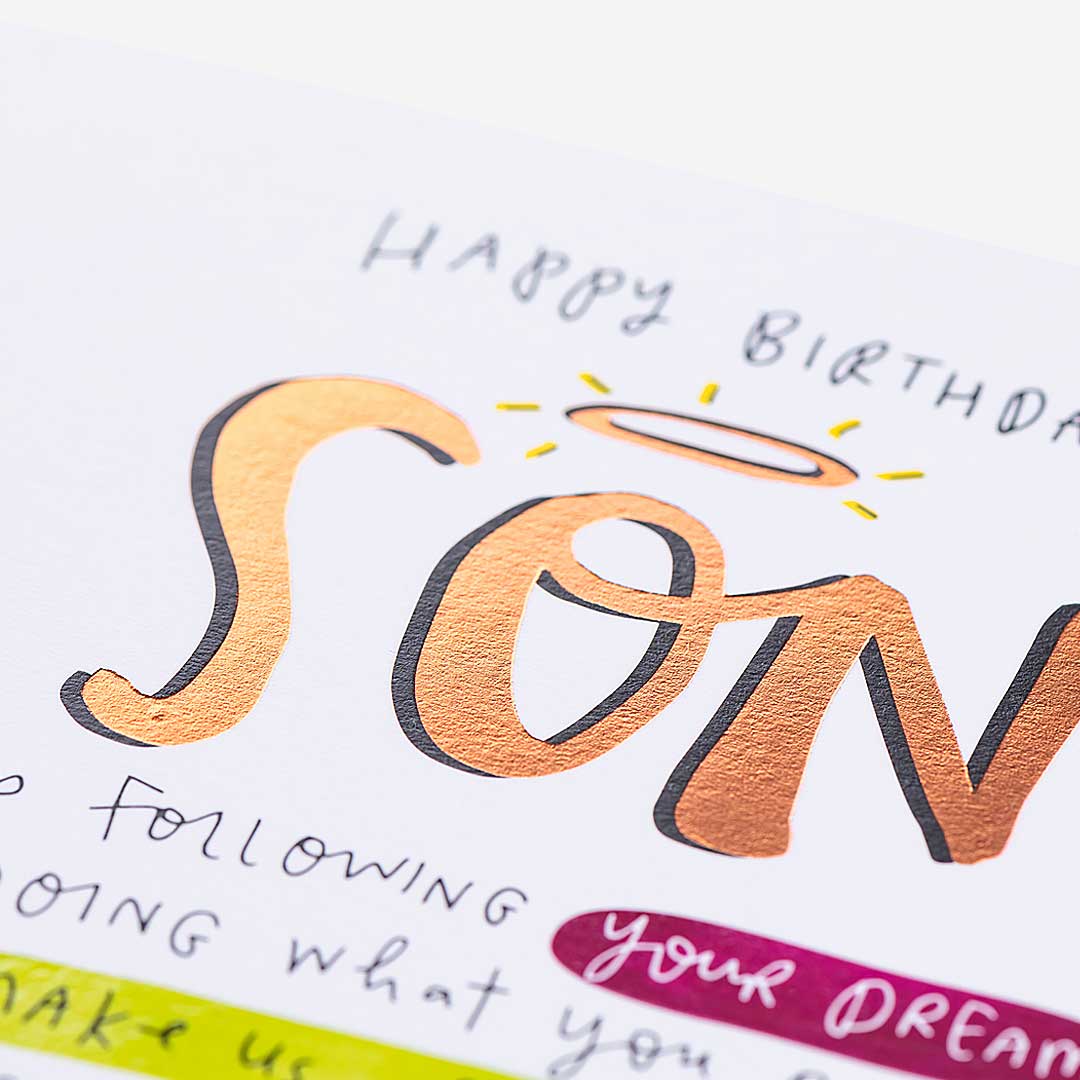 HAPPY BIRTHDA
SON
P FOLLOWING YOUR DREAM
DOING what you
make us